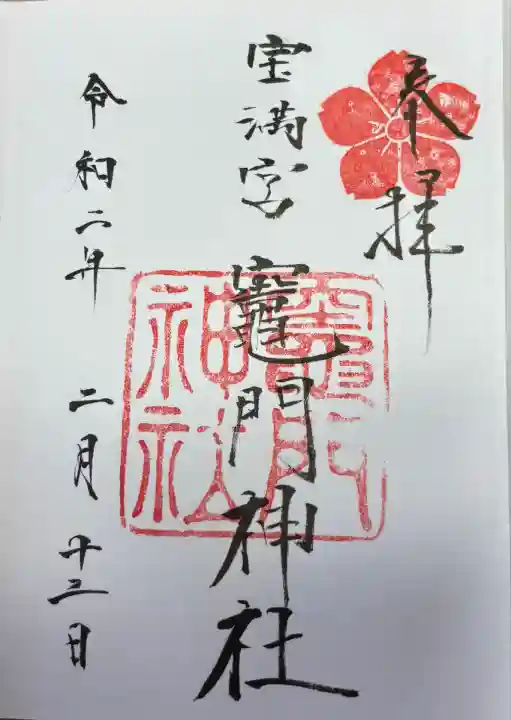 奉拝
宝満宮 竈門神社
竈門神社
令和二年 二月 十三日